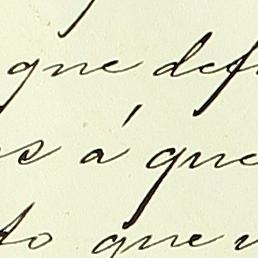 que def
s á que
to que